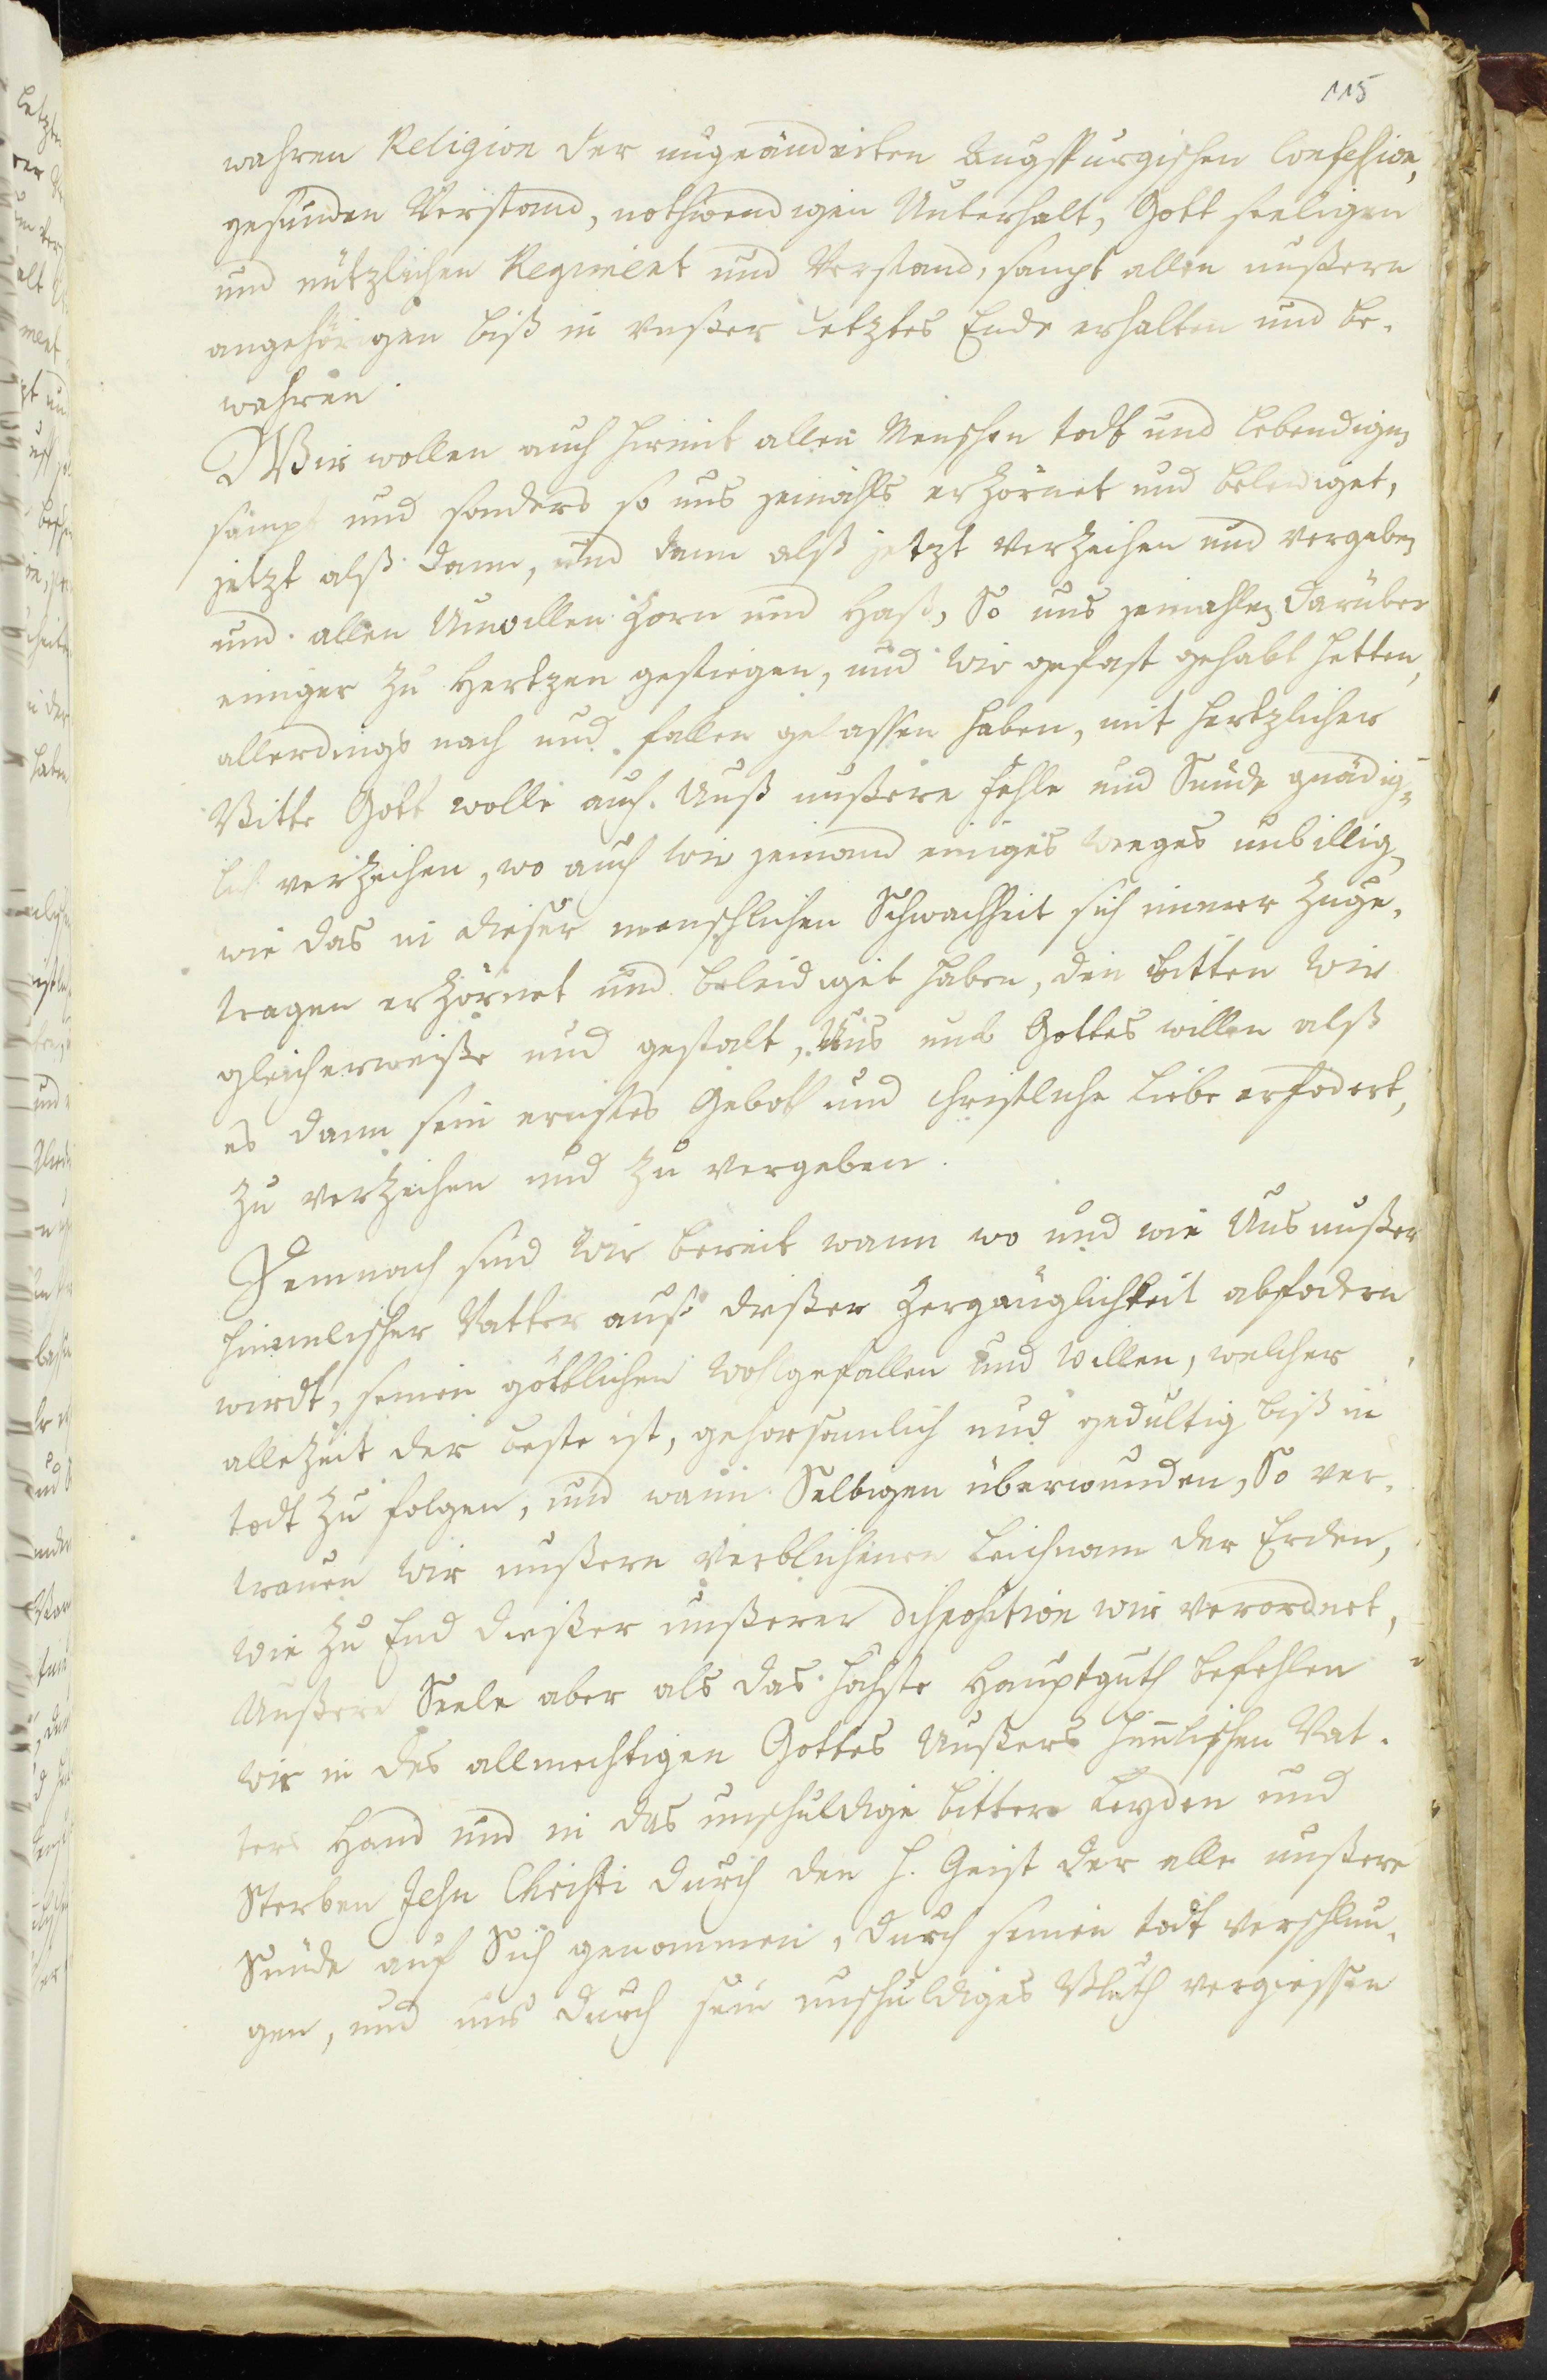 115
wahren Religion der ungeänderten Augspurgischen Confession,
gesunden Verstand, nothwendigen Unterhalt, Gott seeligen
und nützlichen Regiment und Verstand, sampt allen unßern
angehörigen biß in unßer letztes Ende erhalten und be-
wahren.
Wir wollen auch hirmit allen Menschen todt und lebendigen
sampt und sonders so uns jemahls erzörnet und beleidiget,
jetzt alß dann, und dann alß jetzt verzeihen und vergeben
und allen Unwillen Zorn und Haß, So uns jemahlen darüber
einiger zu Hertzen gestiegen, und wir gefast gehabt hetten,
allerdings nach und fallen gelassen haben, mit hertzlicher
Bitte Gott wolle auch Unß unßere Fehle und Sünde gnädig-
lich verzeihen, wo auch wir jemand einiges weeges unbillig,
wie das in dieser menschlichen Schwachheit sich immer zuge-
tragen erzörnet und beleidiget haben, den bitten wir
gleicherweiße und gestalt, Uns umb Gottes willen alß
es dann sein ernstes Geboth und christliche Liebe erfodert,
zu verzeihen und zu vergeben.
Demnach sind wir bereit wann wo und wie Uns unßer
himmlischer Vatter auß dießer Zergänglichkeit abfodern
wirdt, seinen göttlichen wohlgefallen und willen, welcher
allezeit der beste ist, gehorsamlich und gedultig biß in
todt zu folgen, und wann Selbigen überwunden, So ver-
trauen wir unßern verblichenen Leichnam der Erden,
wie zu End dießer unßerer disposition wir verordnet,
Unßere Seele aber als das höchste Hauptguth befehlen
wir in des allmechtigen Gottes Unßers himmlischen Vat-
ters Hand und in das unschuldige bittere Leyden und
Sterben Jesu Christi durch den H. Geist der alle unßere
Sünde auf Sich genommen, durch seinen todt verschlun-
gen, und uns durch sein unschuldiges Bluth vergiessen